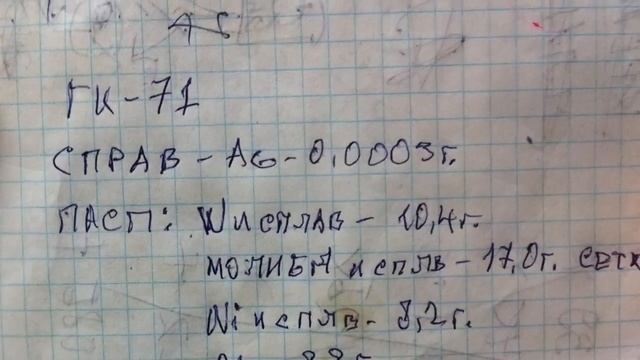 ГК-71
СПРАВ - AG - 0,0003г.
ПАСП: W и СПЛАВ - 10,4г.
МОЛИБД и СПЛВ - 17,0г. СЕТК
Ni и СПЛВ - 8,2г.